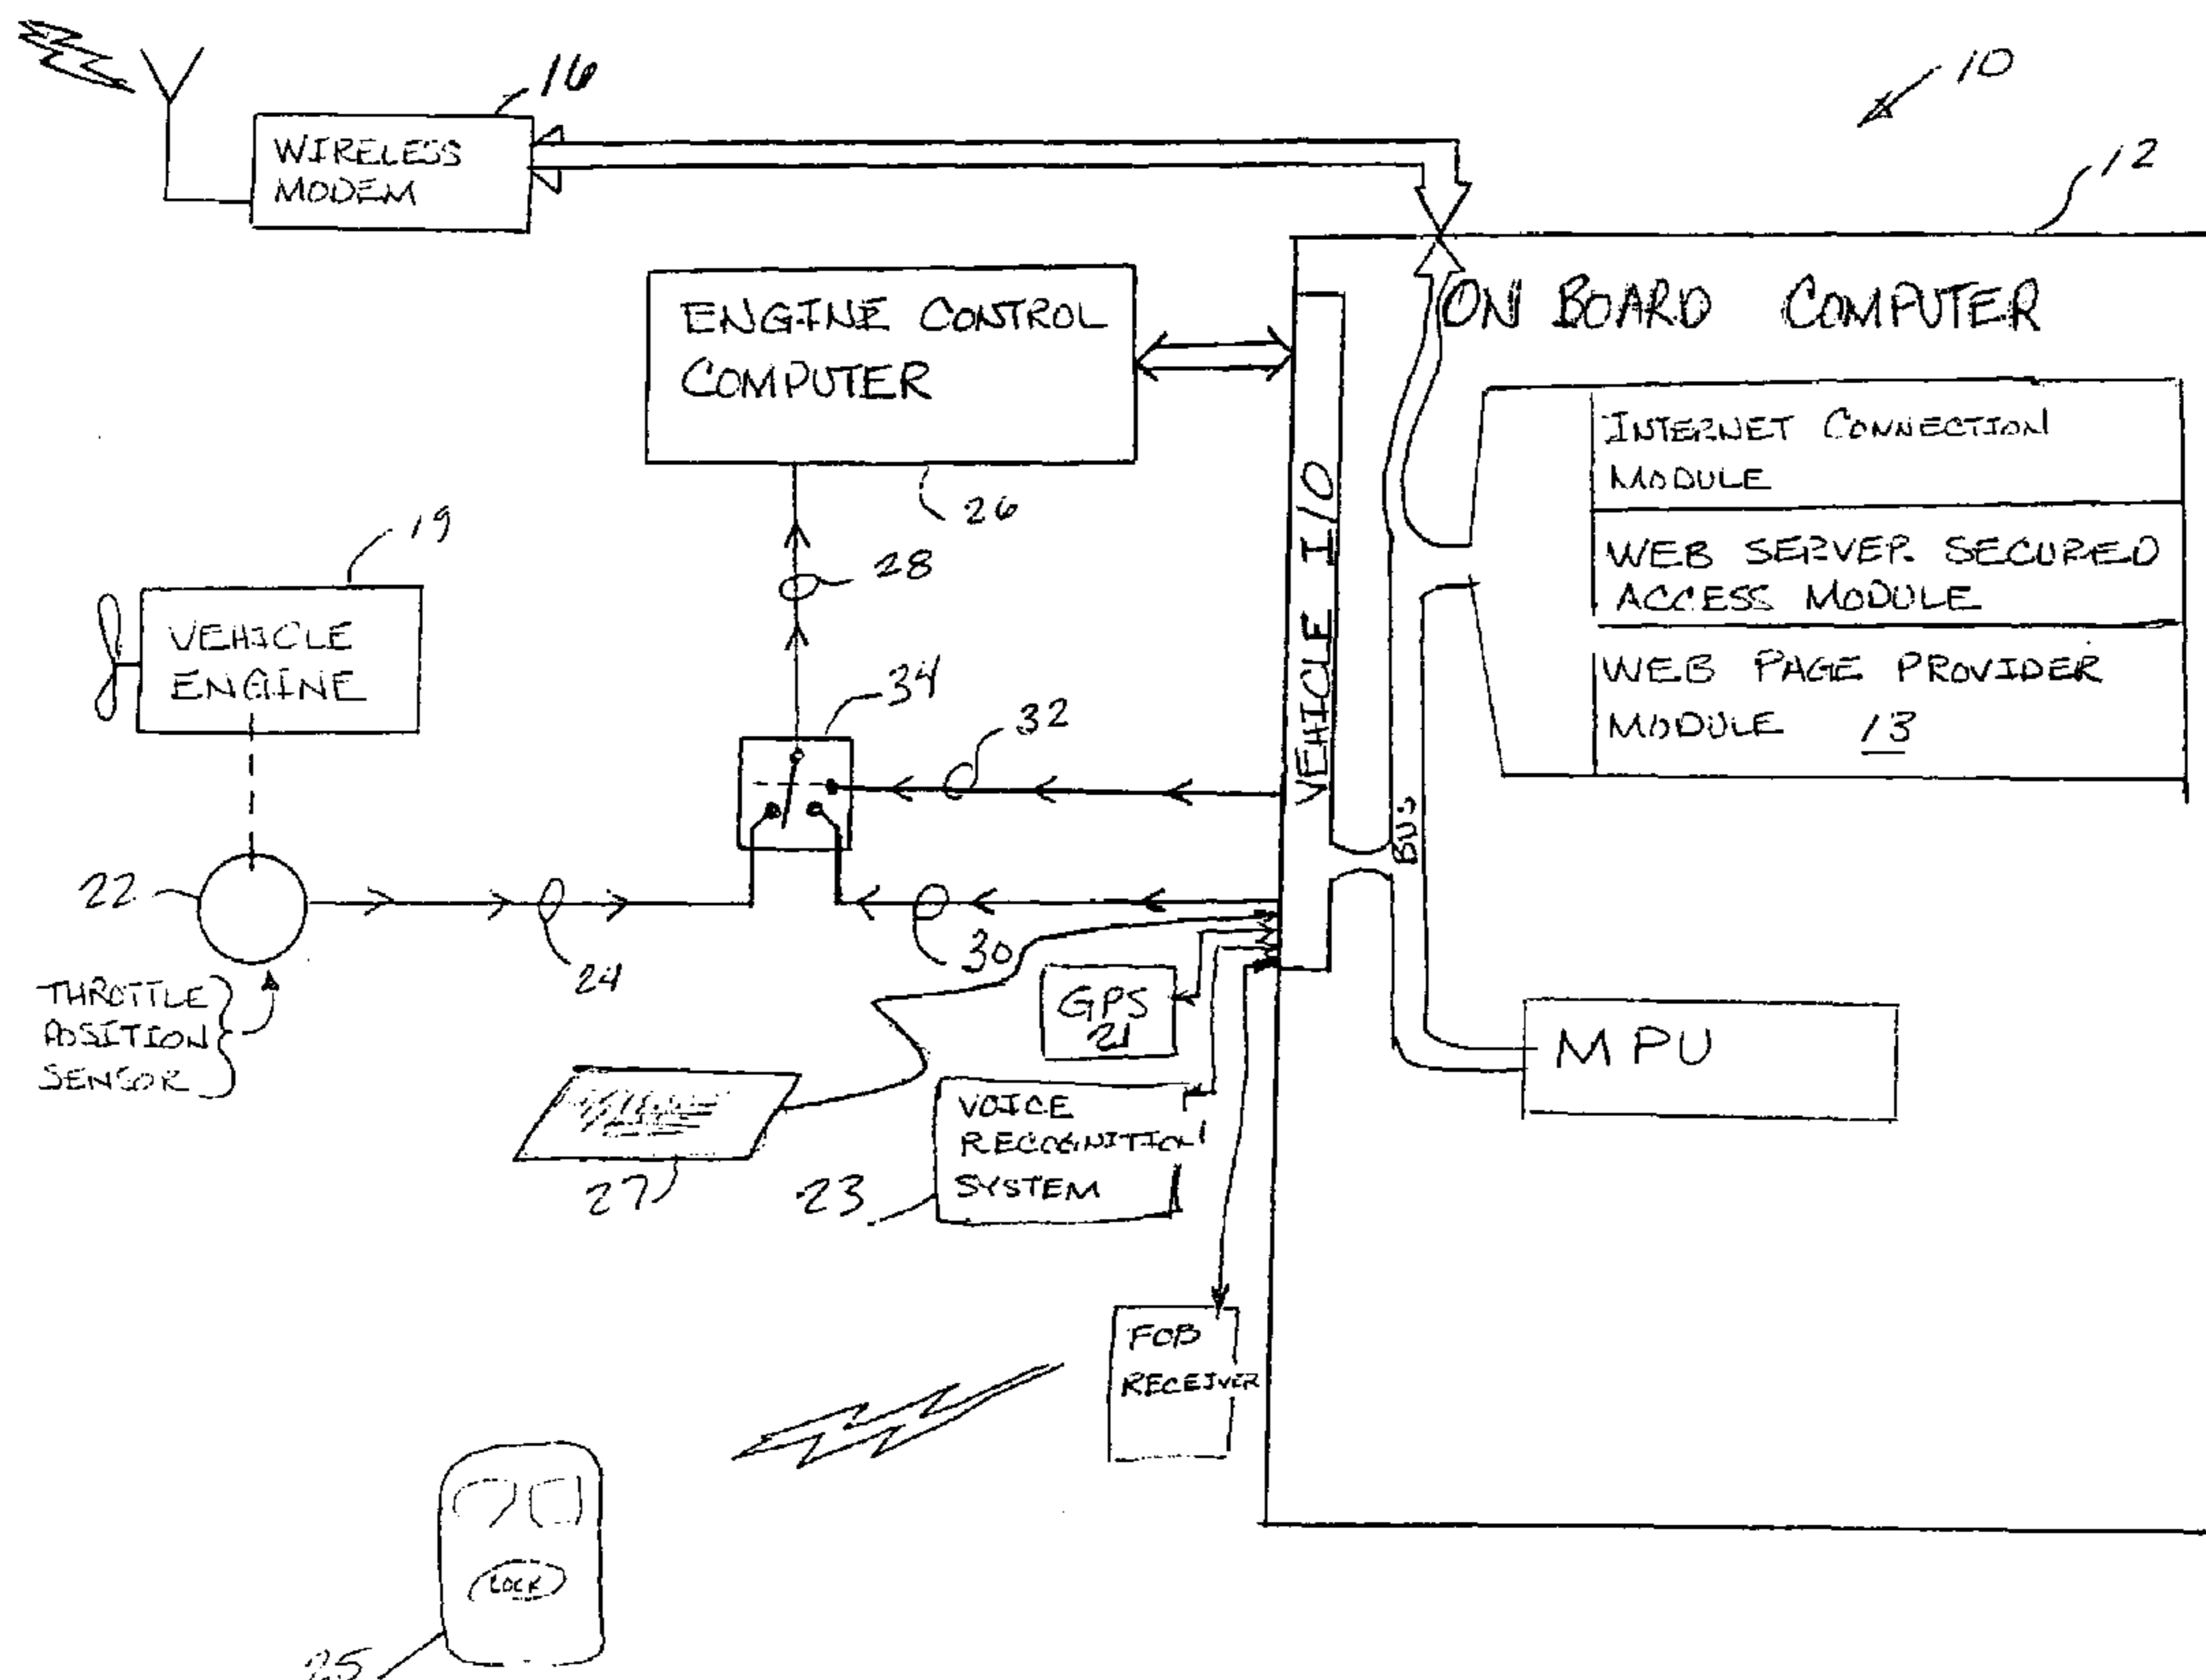 16
10
WIRELESS
MODEM
12
ENGINE CONTROL
COMPUTER
ON BOARD COMPUTER
26
INTERNET CONNECTION
MODULE
WEB SERVER SECURED
ACCESS MODULE
WEB PAGE PROVIDER
MODULE 13
VEHICLE I/O
BUS
19
VEHICLE
ENGINE
28
34
32
22
24
30
THROTTLE
POSITION
SENSOR
GPS
21
MPU
27
VOICE
RECOGNITION
SYSTEM
23
FOB
RECEIVER
LOCK
25